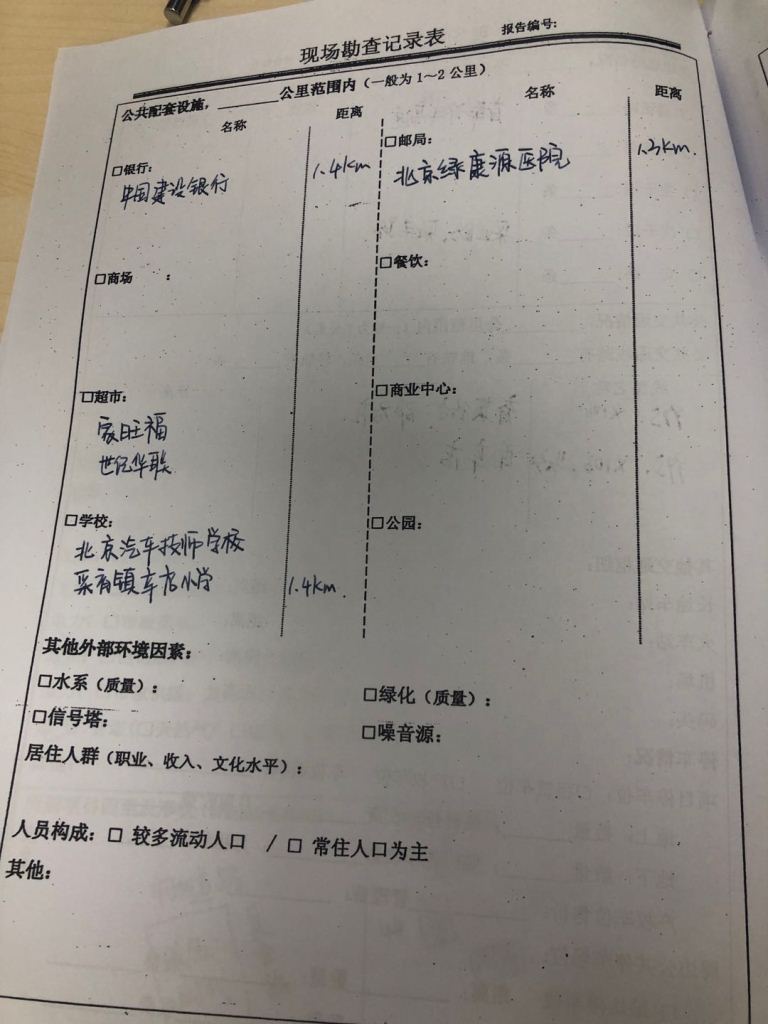 现场勘查记录表
报告编号:
公共配套设施，______公里范围内（一般为1～2公里）
名称 距离 名称 距离
□银行: 1.4km □邮局: 1.3km.
中国建设银行 北京绿康源医院
□商场 : □餐饮:
□超市: □商业中心:
家旺福
世纪华联
□学校: □公园:
北京汽车技师学校
采育镇车店小学 1.4km.
其他外部环境因素:
□水系（质量）: □绿化（质量）:
□信号塔: □噪音源:
居住人群（职业、收入、文化水平）:
人员构成: □ 较多流动人口 / □ 常住人口为主
其他: